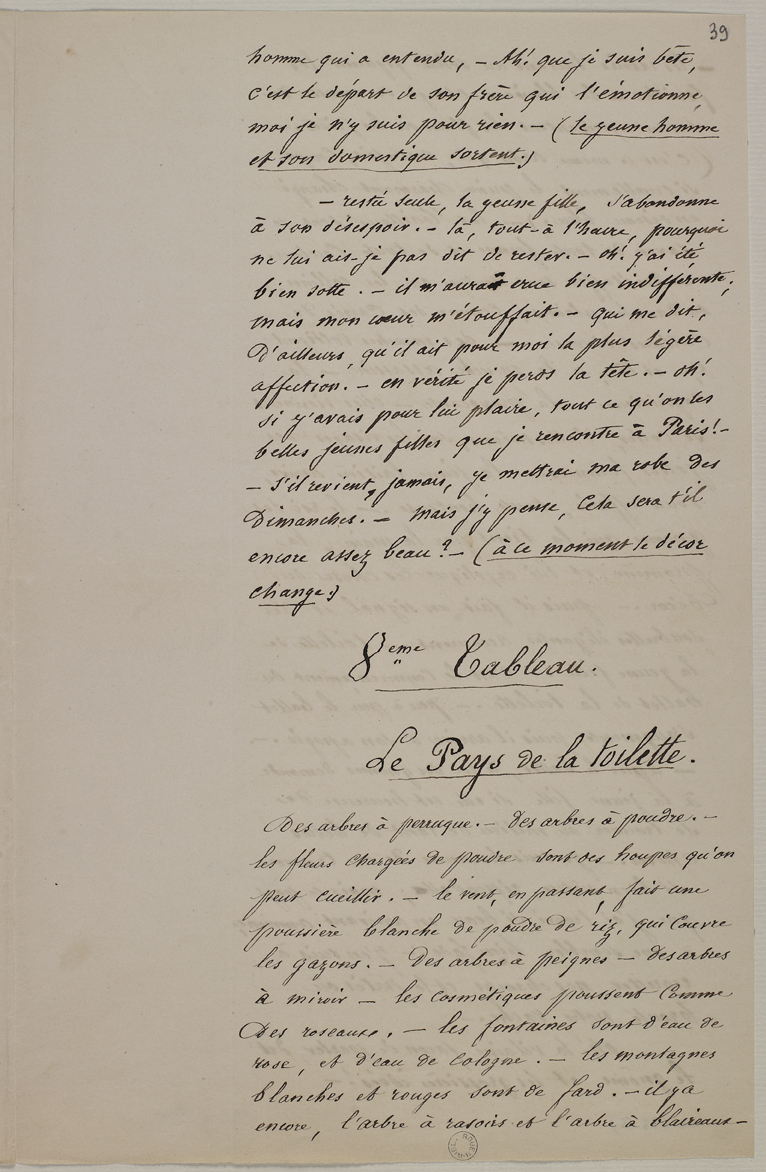 39
homme qui a entendu, - Ah! que je suis bête,
c'est le départ de son frère qui l'émotionne,
moi je n'y suis pour rien. - (le jeune homme
et son domestique sortent.)
- resté seule, la jeune fille, s'abandonne
à son désespoir. - là, tout-à l'heure, pourquoi
ne lui ais-je pas dit de rester. - oh! j'ai été
bien sotte. - il m'aurait crue bien indifférente,
mais mon cœur m'étouffait. - qui me dit,
D'ailleurs, qu'il ait pour moi la plus légère
affection. - en vérité je perds la tête. - oh!
si j'avais pour lui plaire, tout ce qu'on les
belles jeunes filles que je rencontre à Paris! -
- s'il revient, jamais, je mettrai ma robe des
Dimanches. - mais j'y pense, Cela sera t'il
encore assez beau? - (à ce moment le décor
change.)
8eme Tableau.
Le Pays de la toilette.
Des arbres à perruque. - des arbres à poudre. -
les fleurs chargées de poudre sont des houpes qu'on
peut cueillir. - le vent, en passant, fait une
poussière blanche de poudre de riz, qui Couvre
les gazons. - Des arbres à peignes - des arbres
à miroir - les Cosmétiques poussent Comme
Des roseaux. - les fontaines sont d'eau de
rose, et d'eau de Cologne. - les montagnes
blanches et rouges sont de fard. - il y a
encore, l'arbre à rasoirs et l'arbre à blaireaux -